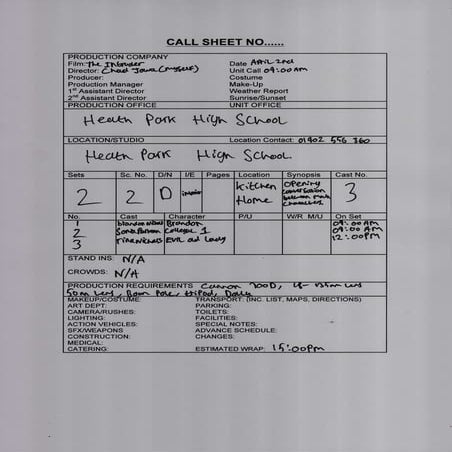 CALL SHEET NO......
PRODUCTION COMPANY
Film: The Intruder Date APRIL 2nd
Director: Chad (myself) Unit Call 09:00AM
Producer: Costume
Production Manager Make-Up
1st Assistant Director Weather Report
2nd Assistant Director Sunrise/Sunset
PRODUCTION OFFICE UNIT OFFICE
Heath Park High School
LOCATION/STUDIO Location Contact: 01902 556 360
Heath Park High School
Sets Sc. No. D/N I/E Pages Location Synopsis Cast No.
2 2 D Kitchen Home opening conversation between main characters 3
No. Cast Character P/U W/R M/U On Set
1 Brandon 09:00AM
2 College 1 09:00 AM
3 Evil old lady 12:00PM
STAND INS: N/A
CROWDS: N/A
PRODUCTION REQUIREMENTS Cannon 700D, 18-135mm Lens
50m Lens, Boom Pole, Dolly
MAKEUP/COSTUME: TRANSPORT: (INC. LIST, MAPS, DIRECTIONS)
ART DEPT: PARKING:
CAMERA/RUSHES: TOILETS:
LIGHTING: FACILITIES:
ACTION VEHICLES: SPECIAL NOTES:
SFX/WEAPONS ADVANCE SCHEDULE:
CONSTRUCTION: CHANGES:
MEDICAL:
CATERING: ESTIMATED WRAP: 15:00pm